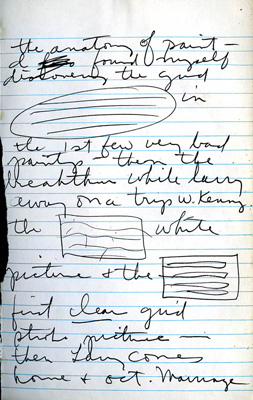 the anatomy of paint –
& found myself
discovering the grid
in
the 1st few very bad
paintings – then the
breakthru while Larry
away on a trip w. Kenny.
the white
picture & the
first clear grid
picture —
then Larry comes
home & oct. Marriage